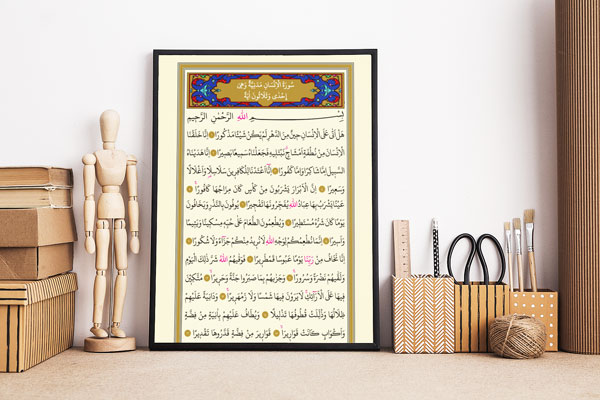 سُورَةُ الْاِنْسَانِ مَدَنِيَّةٌ وَهِيَ
اِحْدٰى وَثَلَاثُونَ اٰيَةً
بِسْمِ اللّٰهِ الرَّحْمٰنِ الرَّحِيمِ
هَلْ اَتٰى عَلَى الْاِنْسَانِ حِينٌ مِنَ الدَّهْرِ لَمْ يَكُنْ شَيْـًٔا مَذْكُورًا اِنَّا خَلَقْنَا
الْاِنْسَانَ مِنْ نُطْفَةٍ اَمْشَاجٍ نَبْتَلِيهِ فَجَعَلْنَاهُ سَمِيعًا بَصِيرًا اِنَّا هَدَيْنَاهُ
السَّبِيلَ اِمَّا شَاكِرًا وَاِمَّا كَفُورًا اِنَّا اَعْتَدْنَا لِلْكَافِرِينَ سَلَاسِلَا وَاَغْلَالًا
وَسَعِيرًا اِنَّ الْاَبْرَارَ يَشْرَبُونَ مِنْ كَأْسٍ كَانَ مِزَاجُهَا كَافُورًا
عَيْنًا يَشْرَبُ بِهَا عِبَادُ اللّٰهِ يُفَجِّرُونَهَا تَفْجِيرًا يُوفُونَ بِالنَّذْرِ وَيَخَافُونَ
يَوْمًا كَانَ شَرُّهُ مُسْتَطِيرًا وَيُطْعِمُونَ الطَّعَامَ عَلٰى حُبِّهِ مِسْكِينًا وَيَتِيمًا
وَاَسِيرًا اِنَّمَا نُطْعِمُكُمْ لِوَجْهِ اللّٰهِ لَا نُرِيدُ مِنْكُمْ جَزَاءً وَلَا شُكُورًا
اِنَّا نَخَافُ مِنْ رَبِّنَا يَوْمًا عَبُوسًا قَمْطَرِيرًا فَوَقٰيهُمُ اللّٰهُ شَرَّ ذٰلِكَ الْيَوْمِ
وَلَقّٰيهُمْ نَضْرَةً وَسُرُورًا وَجَزٰيهُمْ بِمَا صَبَرُوا جَنَّةً وَحَرِيرًا مُتَّكِـِٔينَ
فِيهَا عَلَى الْاَرَائِكِ لَا يَرَوْنَ فِيهَا شَمْسًا وَلَا زَمْهَرِيرًا وَدَانِيَةً عَلَيْهِمْ
ظِلَالُهَا وَذُلِّلَتْ قُطُوفُهَا تَذْلِيلًا وَيُطَافُ عَلَيْهِمْ بِاٰنِيَةٍ مِنْ فِضَّةٍ
وَاَكْوَابٍ كَانَتْ قَوَارِيرَا قَوَارِيرَا مِنْ فِضَّةٍ قَدَّرُوهَا تَقْدِيرًا